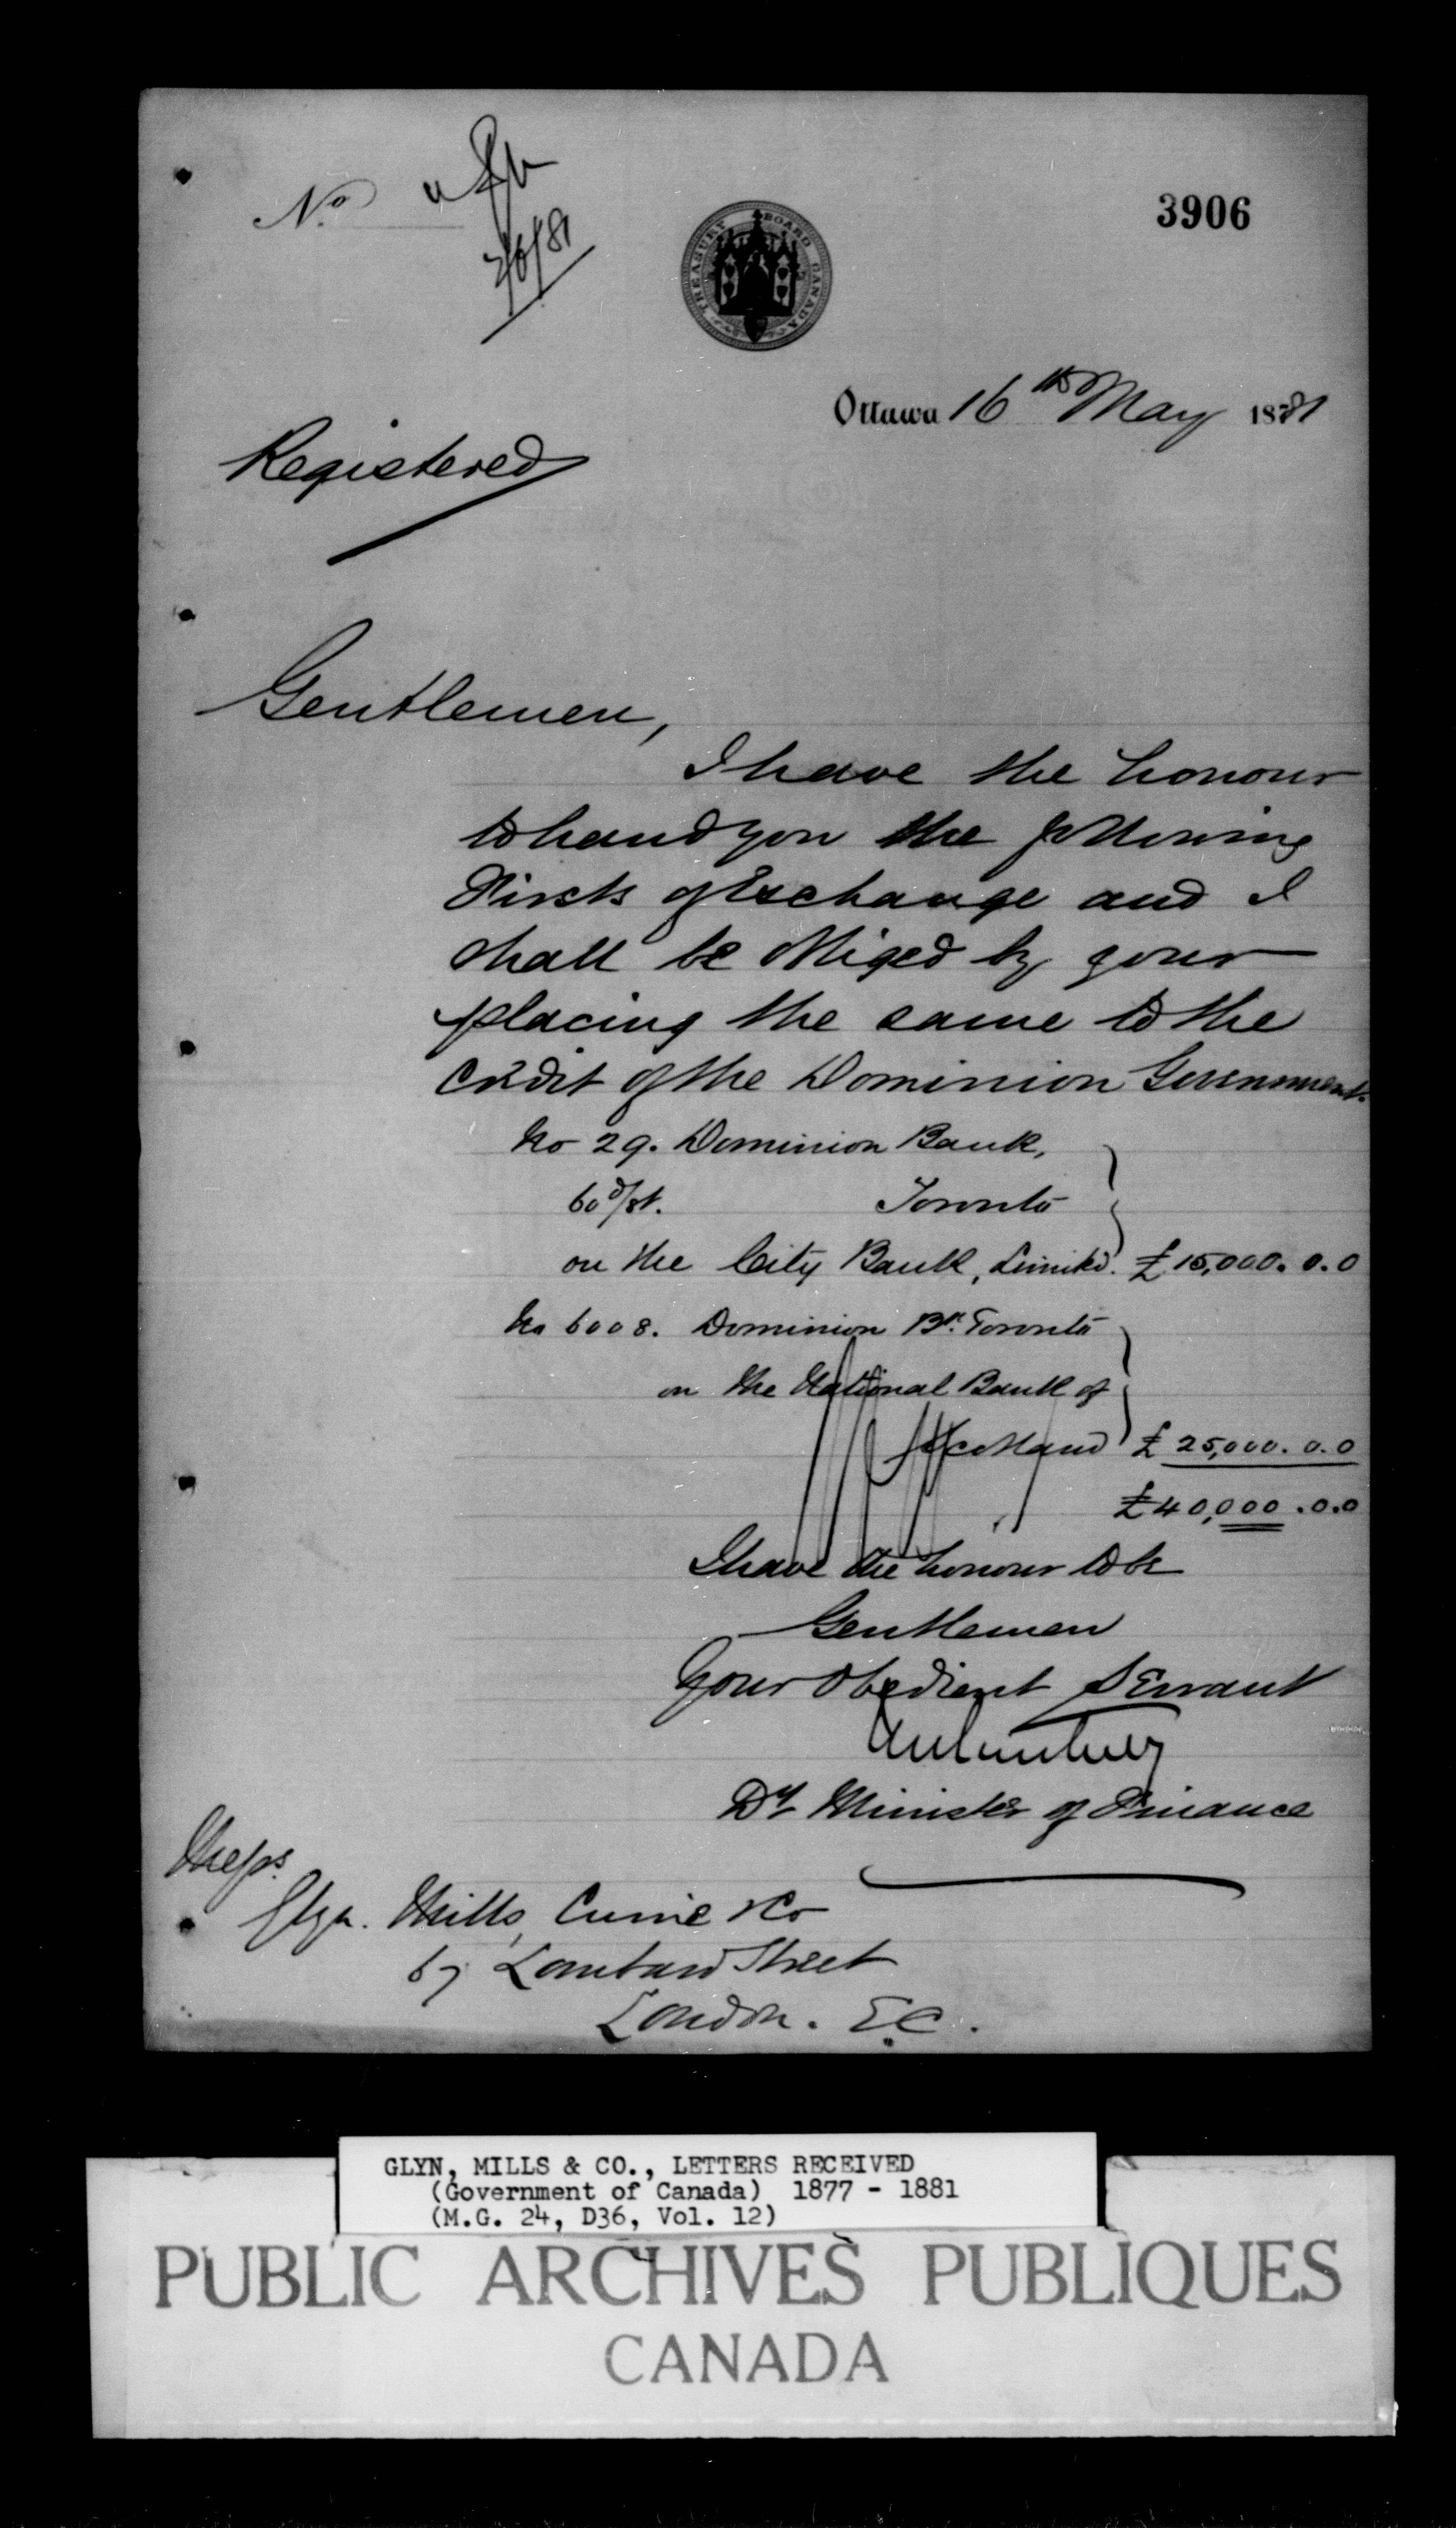 No
2/6/81
3906
TREASURY BOARD CANADA
Ottawa 16th May 1881
Registered
Gentlemen,
I have the honour
to hand you the following
Firsts of Exchange and I
shall be obliged by your
placing the same to the
credit of the Dominion Government.
No 29. Dominion Bank,
60 d/st. Toronto
on the City Bank, Limited. £15,000.0.0
No 6008. Dominion Bk. Toronto
on the National Bank of
Scotland £25,000.0.0
£40,000.0.0
I have the honour to be
Gentlemen
Your obedient Servant
Dy Minister of Finance
Messrs
Glyn. Mills, Currie & Co
67 Lombard Street
London. E.C.
GLYN, MILLS & CO., LETTERS RECEIVED
(Government of Canada) 1877 - 1881
(M.G. 24, D36, Vol. 12)
PUBLIC ARCHIVES PUBLIQUES
CANADA